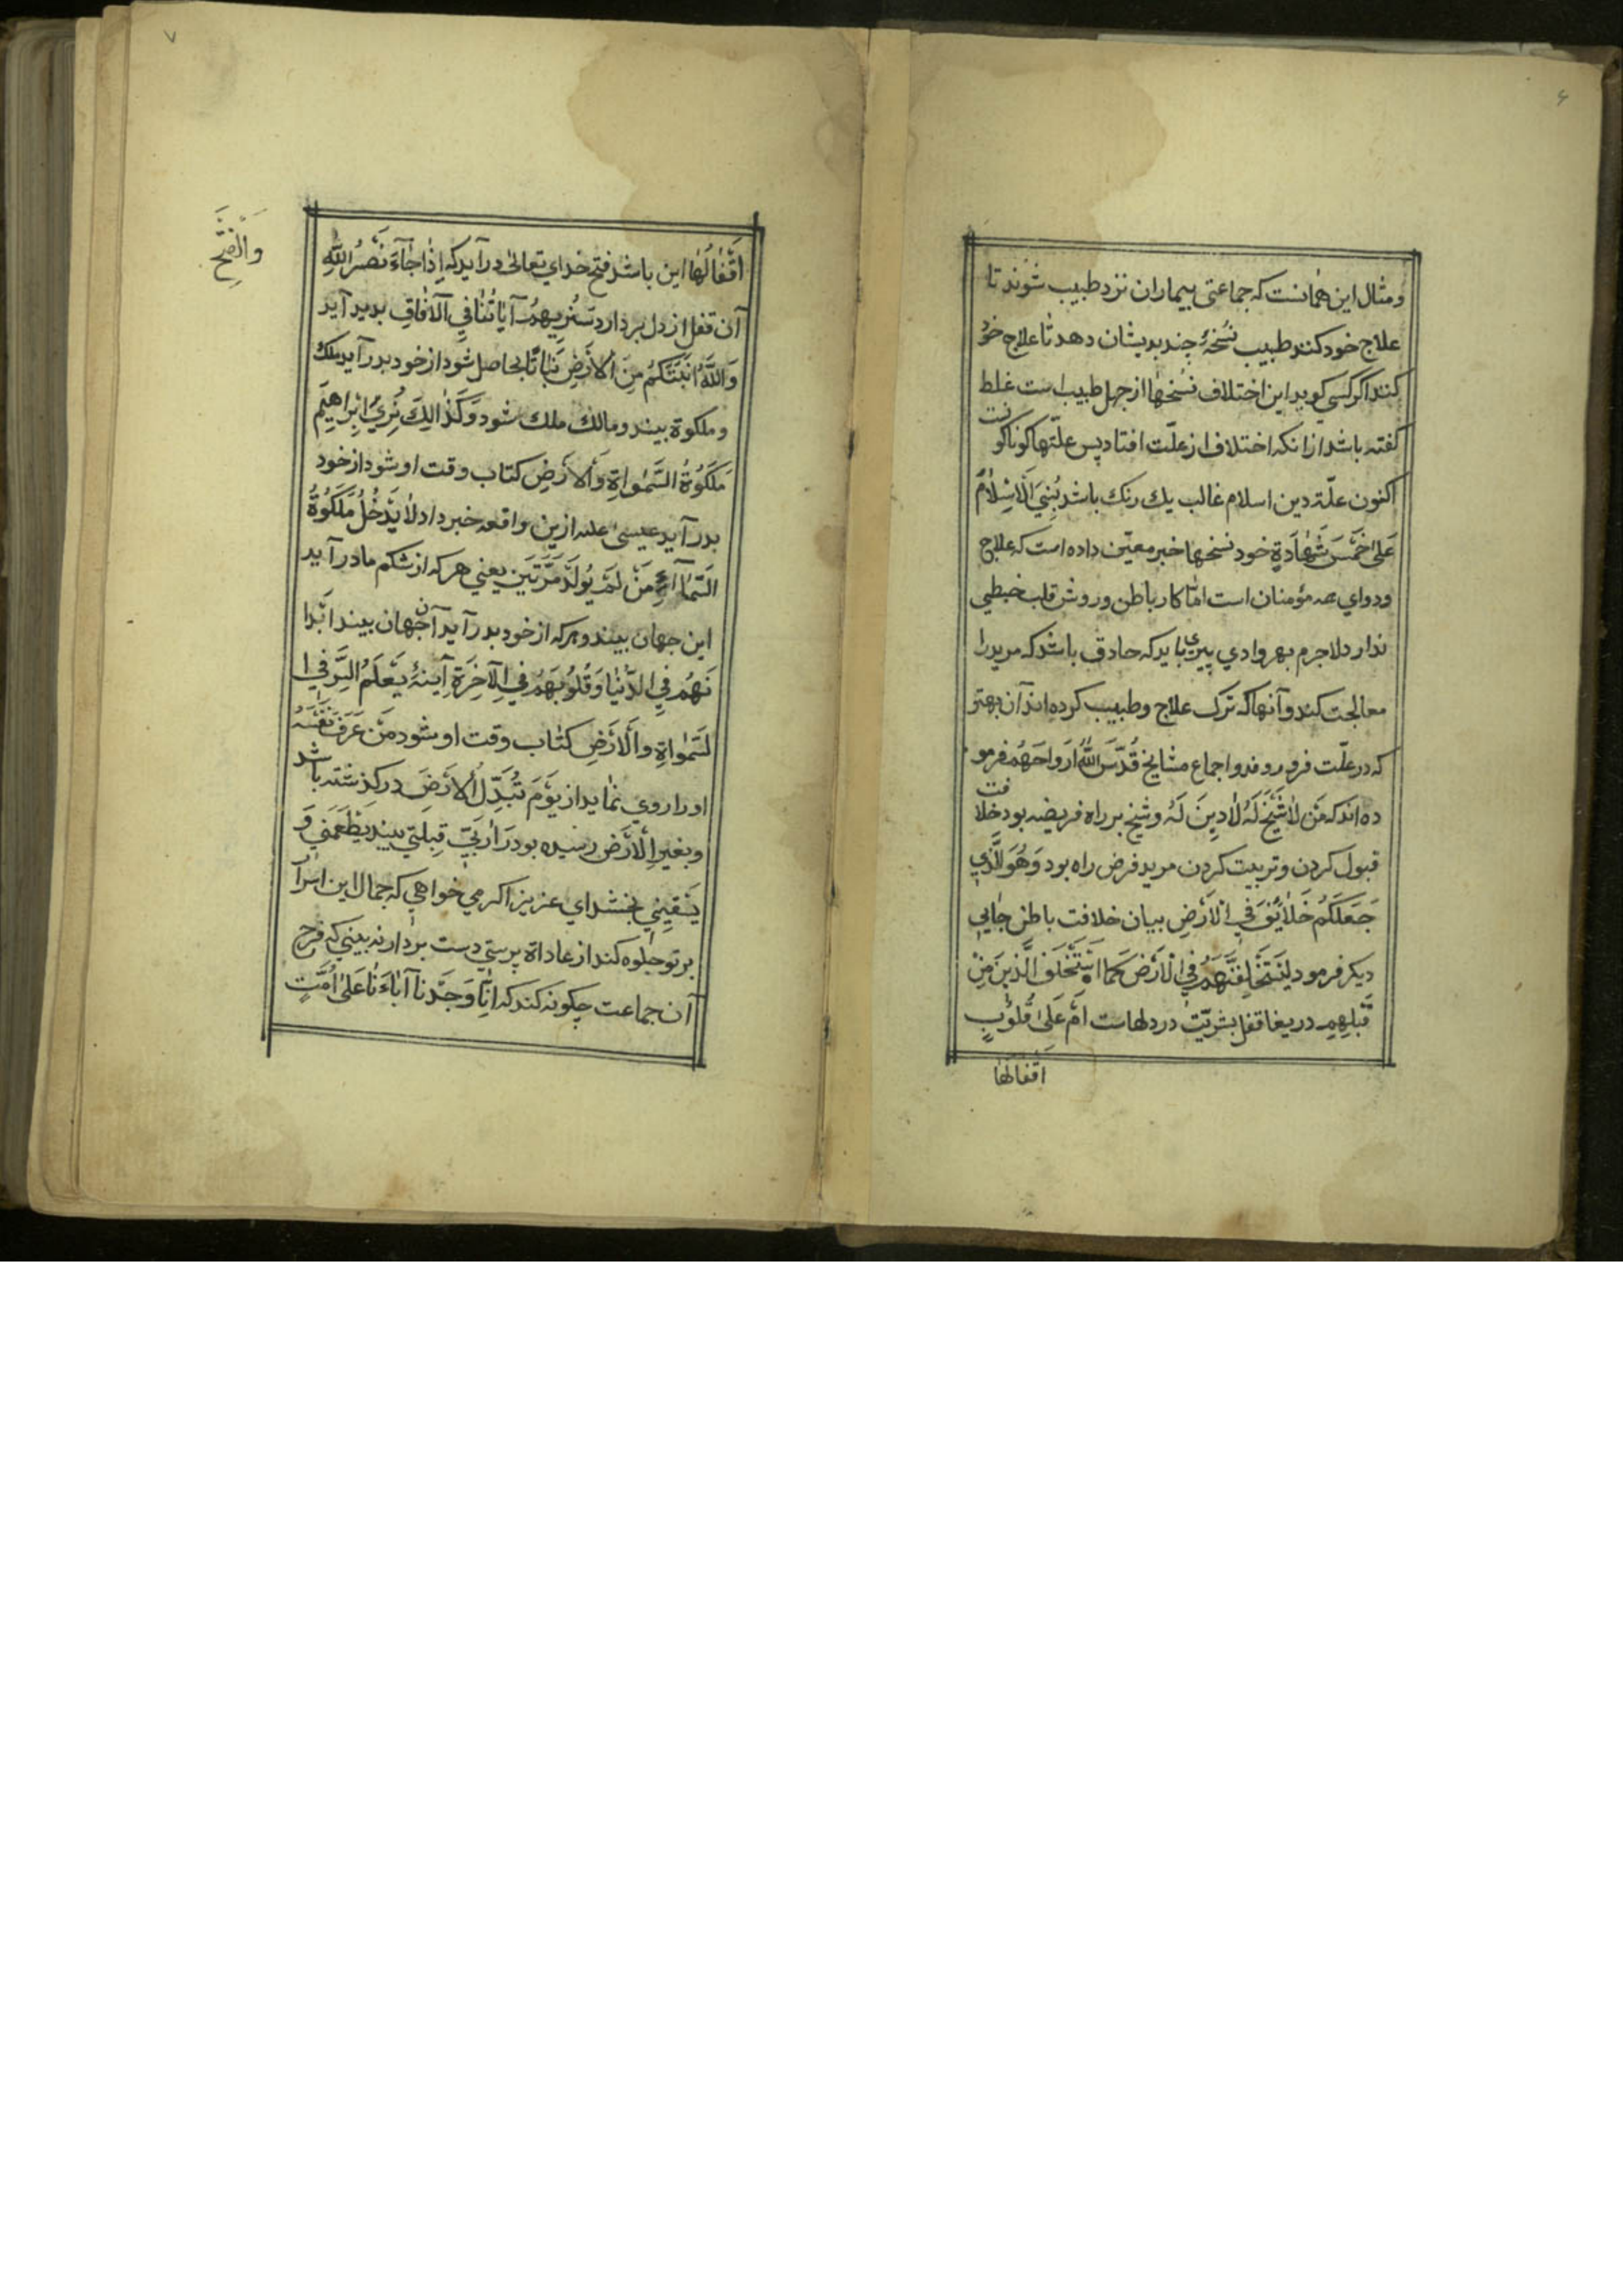 ۶
ومثال این همانست که جماعتی بیماران نزد طبیب شوند تا
علاج خود کنند طبیب نُسْخهٔ چند بدیشان دهد تا علاج خود
کنند اکر کسی کوید این اختلاف نسْخها از جهل طبیب است غلط
کفته باشد ازانکه اختلاف از علّت افتاد پس علّتها کوناکو
نست
اکنون علّة دین اسلام غالب یك رنك باشد بُنِيَ الْاِسْلَامُ
عَلیٰ خَمْسَ شَهَادَةٍ خود نسخها خبر معیّن داده است که علاج
ودوای همه مؤمنان است امّا کار باطن وروش قلب خبطی
ندارد لاجرم بهر وادی پیری باید که حاذق باشد که مرید را
معالجت کند وآنها که ترك علاج وطبیب کرده اند آن بهتر
که در علّت فرو روند واجماع مشایخ قُدِّسَ اللهُ اَرْوَاحَهُمْ فرمو
ده اند که مَنْ لَا شَیْخَ لَهُ لَا دِینَ لَهُ وشیخ بر راه فریضه بود خلا
فت
قبول کردن وتربیت کردن مرید فرض راه بود وَهُوَ الَّذِي
جَعَلَكُمْ خَلَائِفَ فِي الْاَرْضِ بیان خلافت باطن جایی
دیکر فرمود لِیَسْتَخْلِفَنَّهُمْ فِي الْاَرْضِ كَمَا اسْتَخْلَفَ الَّذِينَ مِنْ
قَبْلِهِمْ دریغا قفل بشریّت در دلهاست اَمْ عَلیٰ قُلُوبٍ
اَقْفَالُهَا
۷
اَقْفَالُهَا این باشد فتح خدای تعالیٰ در آید که اِذَا جَآءَ نَصْرُ اللهِ
وَالْفَتْحُ
آن قفل از دل بردارد سَنُرِیهِمْ آیَاتُنَا فِي الْآفَاقِ بدید آید
وَاللهُ اَنْبَتَكُمْ مِنَ الْاَرْضِ نَبَاتًا بحاصل شود از خود بدر آید ملك
وملکوة بیند ومالك ملك شود وَكَذَالِكَ نُرِي اِبْرَاهِیمَ
مَلَكُوةُ السَّمٰوَاةِ وَالْاَرْضِ کتاب وقت او شود از خود
بدر آید عیسیٰ علیه ازین واقعه خبر داد لَا یَدْخُلُ مَلَكُوةُ
السَّمَآءِ مَنْ لَمْ یُولَدْ مَرَّتَیْنِ یعنی هر که از شکم مادر آید
این جهان بیند وهرکه از خود بدر آید آن جهان بیند اَبْدَا
نَهُمْ فِي الدُّنْیَا وَقُلُوبَهُمْ فِي الْآخِرَةِ آینهٔ یَعْلَمُ السِّرَّ فِي ا
لسَّمٰوَاةِ وَالْاَرْضِ کتاب وقت او شود مَنْ عَرَفَ نَفْسَهُ
او را روی نماید از یَوْمَ تُبَدَّلُ الْاَرْضَ در کذشته باشد
وبغیر الْاَرْضِ رسیده بود رَاَرَبِّي قِبلَتِي بیند یُطْعِمُنِي وَ
یَسْقِینِي بخشد ای عزیز اکر می خواهی که جمال این اسرا
بر تو جلوه کند از عاداة پرستی دست بردار نه بینی که فرح
آن جماعت چکونه کند که اِنَّا وَجَدْنَا آبَاءَنَا عَلیٰ اُمَّتٍ